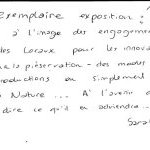 exemplaire exposition :
à l'image des engagements
des locaux pour les innova
la préservation - des modes
productions ou simplement
Nature ... A l'avenir
dire ce qu'il en adviendra ...
Sara